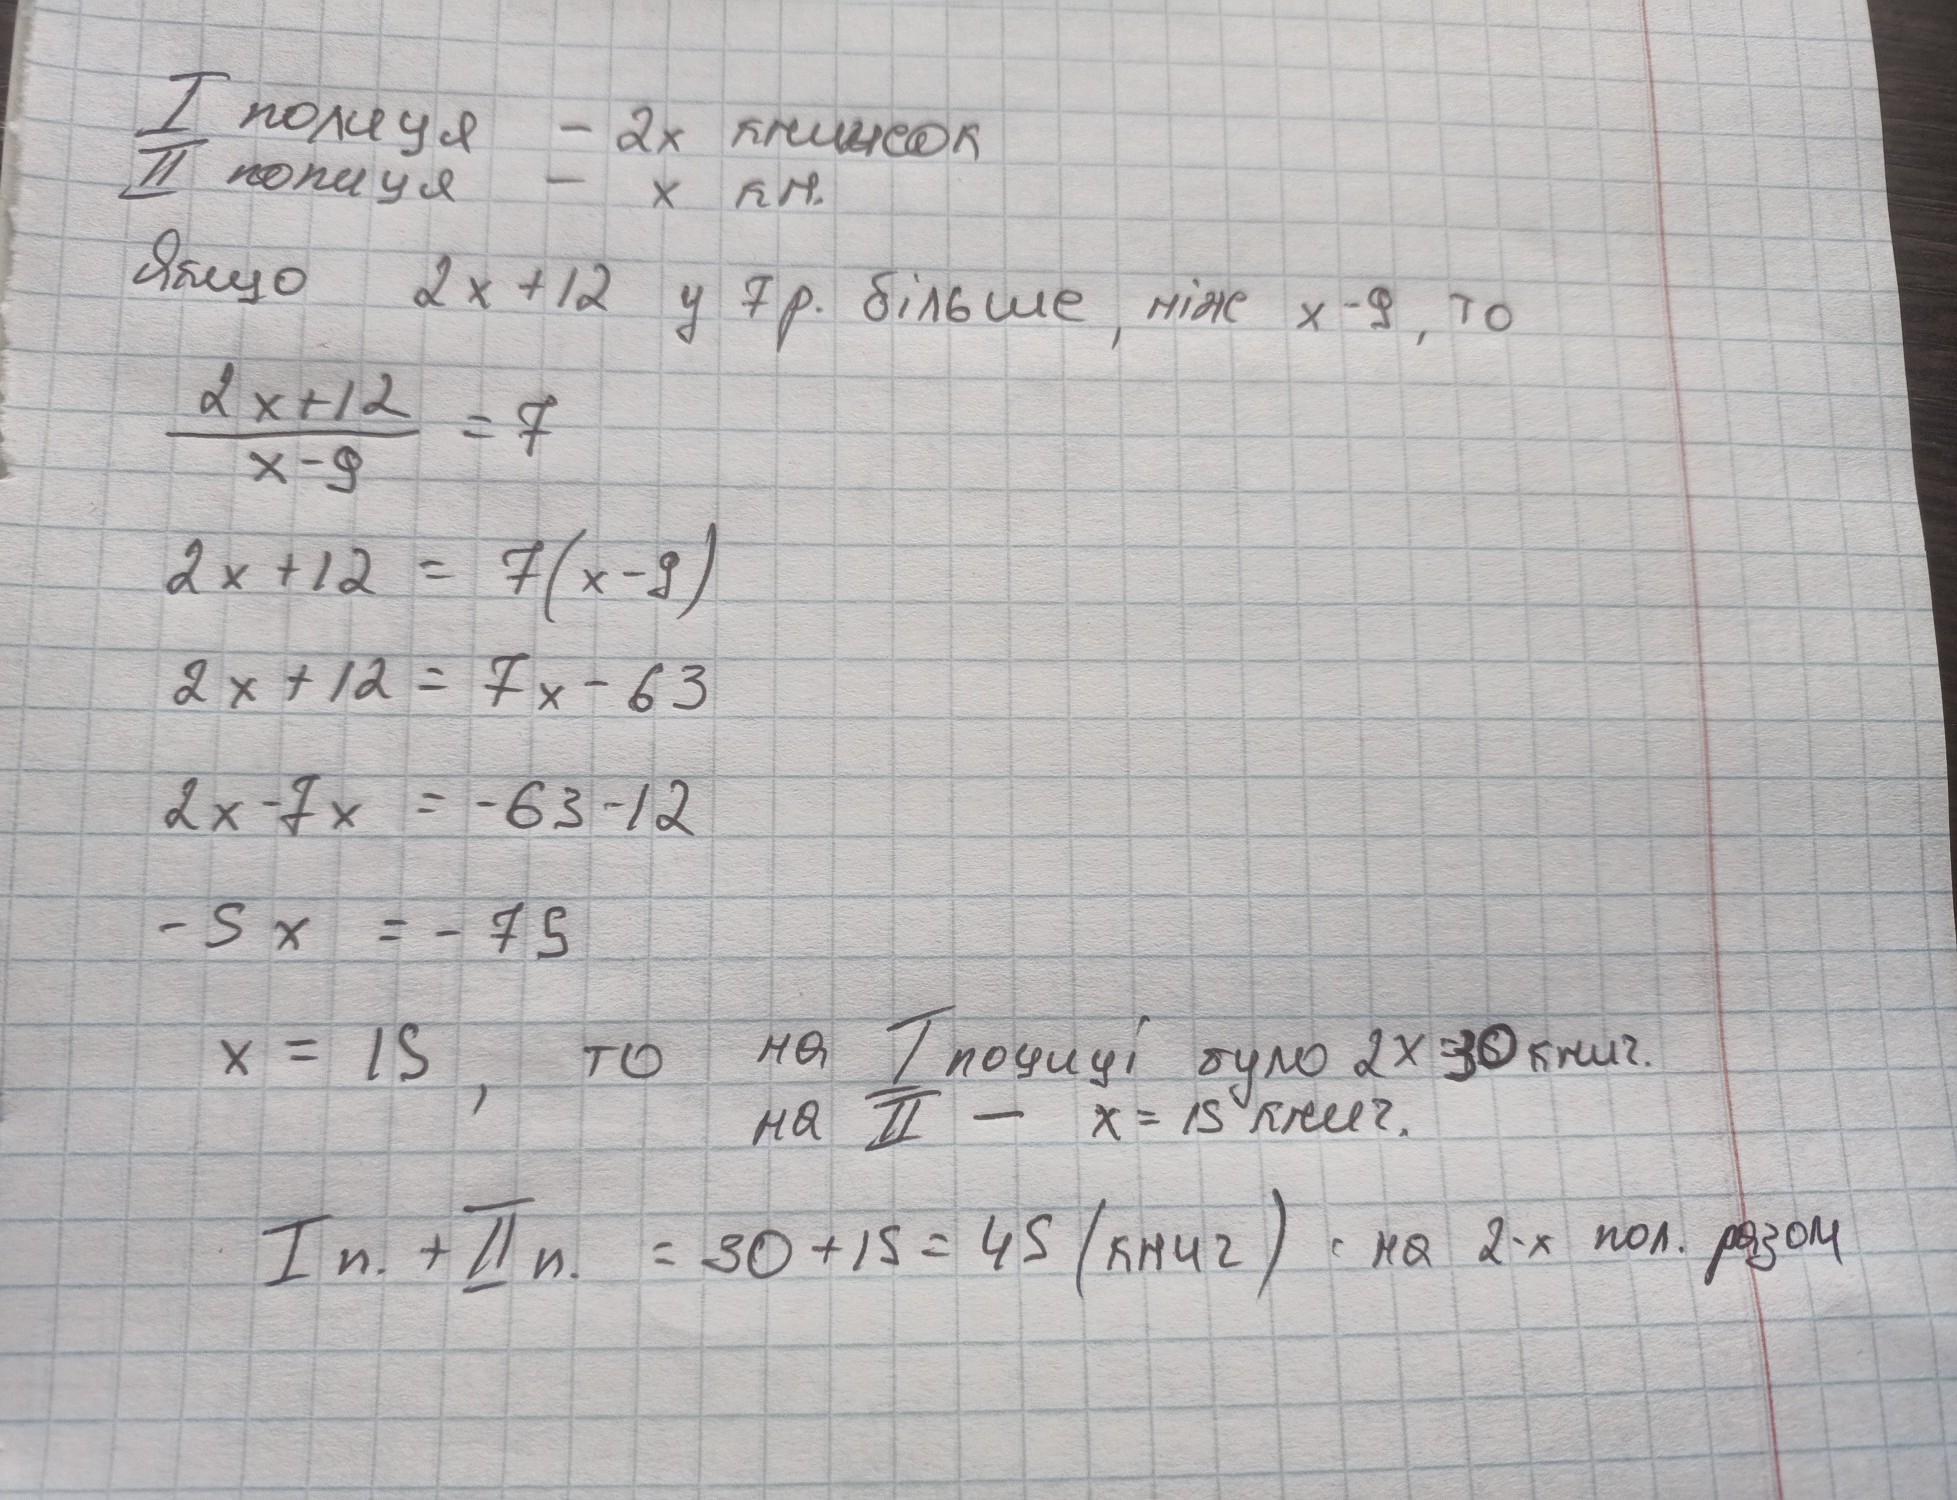 I полиця - 2x книжок
II полиця - x кн.
Якщо 2x+12 у 7 р. більше, ніж x-9, то
2x+12 / x-9 = 7
2x+12 = 7(x-9)
2x+12 = 7x-63
2x-7x = -63-12
-5x = -75
x = 15, то на I полиці було 2x=30 книг.
на II - x=15 книг.
I п. + II п. = 30+15=45 (книг) - на 2-х пол. разом